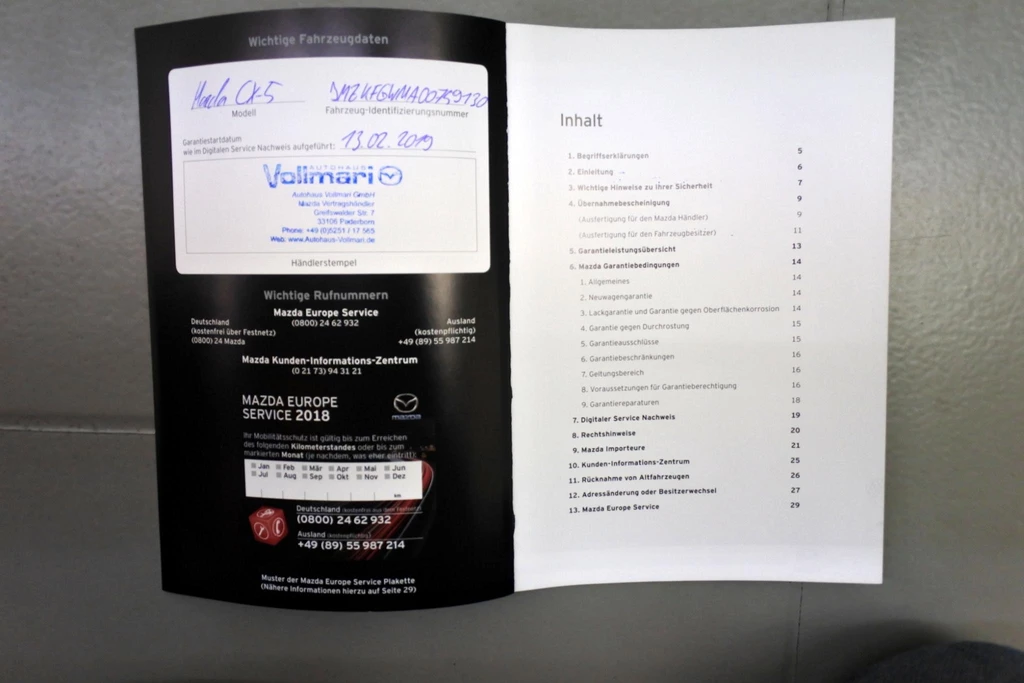 Wichtige Fahrzeugdaten
Mazda CX-5
JMZKFGWMA00759130
Modell
Fahrzeug-Identifizierungsnummer
Garantiestartdatum
wie im Digitalen Service Nachweis aufgeführt: 13.02.2019
AUTOHAUS
Vollmari
Autohaus Vollmari GmbH
Mazda Vertragshändler
Greifswalder Str. 7
33106 Paderborn
Phone: +49 (0)5251 / 17 565
Web: www.Autohaus-Vollmari.de
Händlerstempel
Wichtige Rufnummern
Mazda Europe Service
(0800) 24 62 932
Deutschland
(kostenfrei über Festnetz)
(0800) 24 Mazda
Ausland
(kostenpflichtig)
+49 (89) 55 987 214
Mazda Kunden-Informations-Zentrum
(0 21 73) 94 31 21
MAZDA EUROPE
SERVICE 2018
mazda
Ihr Mobilitätsschutz ist gültig bis zum Erreichen
des folgenden Kilometerstandes oder bis zum
markierten Monat (je nachdem, was eher eintritt):
Jan Feb Mär Apr Mai Jun
Jul Aug Sep Okt Nov Dez
km
Deutschland (kostenfrei aus dem Festnetz)
(0800) 24 62 932
Ausland (kostenpflichtig)
+49 (89) 55 987 214
Muster der Mazda Europe Service Plakette
(Nähere Informationen hierzu auf Seite 29)
Inhalt
1. Begriffserklärungen 5
2. Einleitung 6
3. Wichtige Hinweise zu Ihrer Sicherheit 7
4. Übernahmebescheinigung 9
(Ausfertigung für den Mazda Händler) 9
(Ausfertigung für den Fahrzeugbesitzer) 11
5. Garantieleistungsübersicht 13
6. Mazda Garantiebedingungen 14
1. Allgemeines 14
2. Neuwagengarantie 14
3. Lackgarantie und Garantie gegen Oberflächenkorrosion 14
4. Garantie gegen Durchrostung 15
5. Garantieausschlüsse 15
6. Garantiebeschränkungen 16
7. Geltungsbereich 16
8. Voraussetzungen für Garantieberechtigung 16
9. Garantiereparaturen 18
7. Digitaler Service Nachweis 19
8. Rechtshinweise 20
9. Mazda Importeure 21
10. Kunden-Informations-Zentrum 25
11. Rücknahme von Altfahrzeugen 26
12. Adressänderung oder Besitzerwechsel 27
13. Mazda Europe Service 29